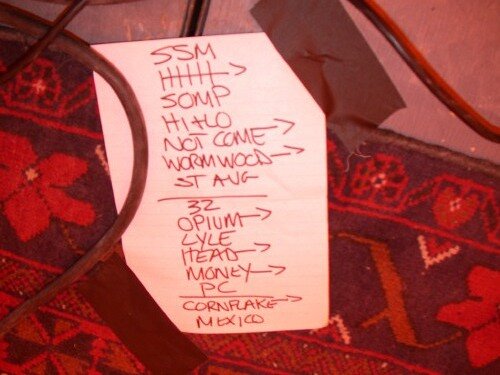 SSM
HHHH→
SOMP
HI+LO
NOT COME→
WORMWOOD→
ST AUG
32
OPIUM→
LYLE
HEAD→
MONEY→
PC
CORNFLAKE→
MEXICO